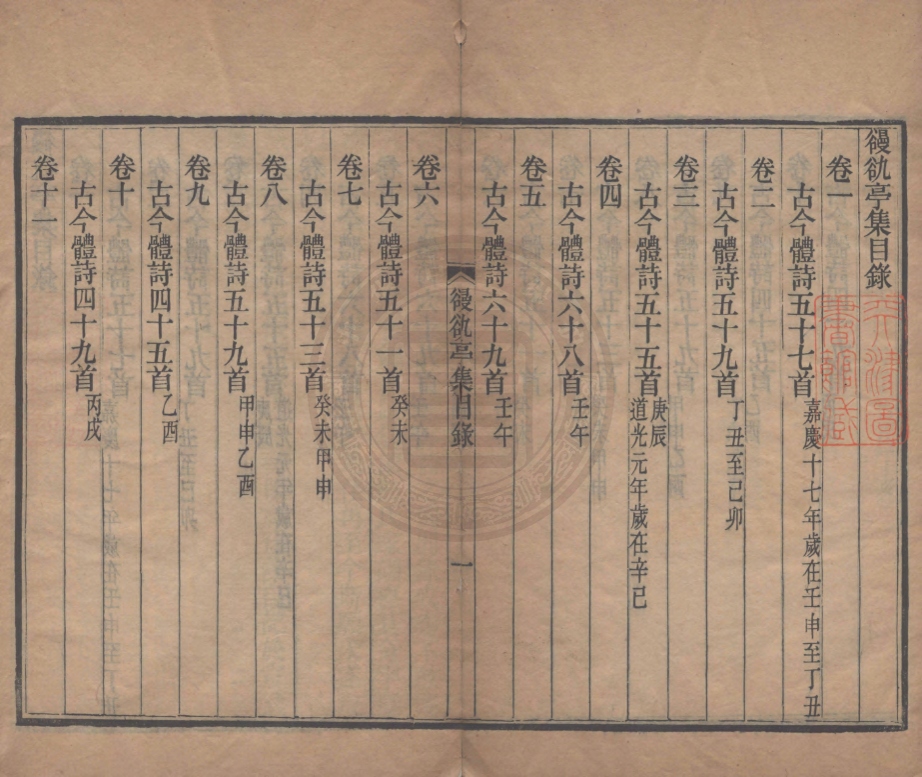 䜱䜪亭集目錄
卷一
古今體詩五十七首 嘉慶十七年歲在壬申至丁丑
卷二
古今體詩五十九首 丁丑至己卯
卷三
古今體詩五十五首 庚辰
道光元年歲在辛巳
卷四
古今體詩六十八首 壬午
卷五
古今體詩六十九首 壬午
䜱䜪亭集目錄 一
卷六
古今體詩五十一首 癸未
卷七
古今體詩五十三首 癸未甲申
卷八
古今體詩五十九首 甲申乙酉
卷九
古今體詩四十五首 乙酉
卷十
古今體詩四十九首 丙戌
卷十一
天津圖
書館藏